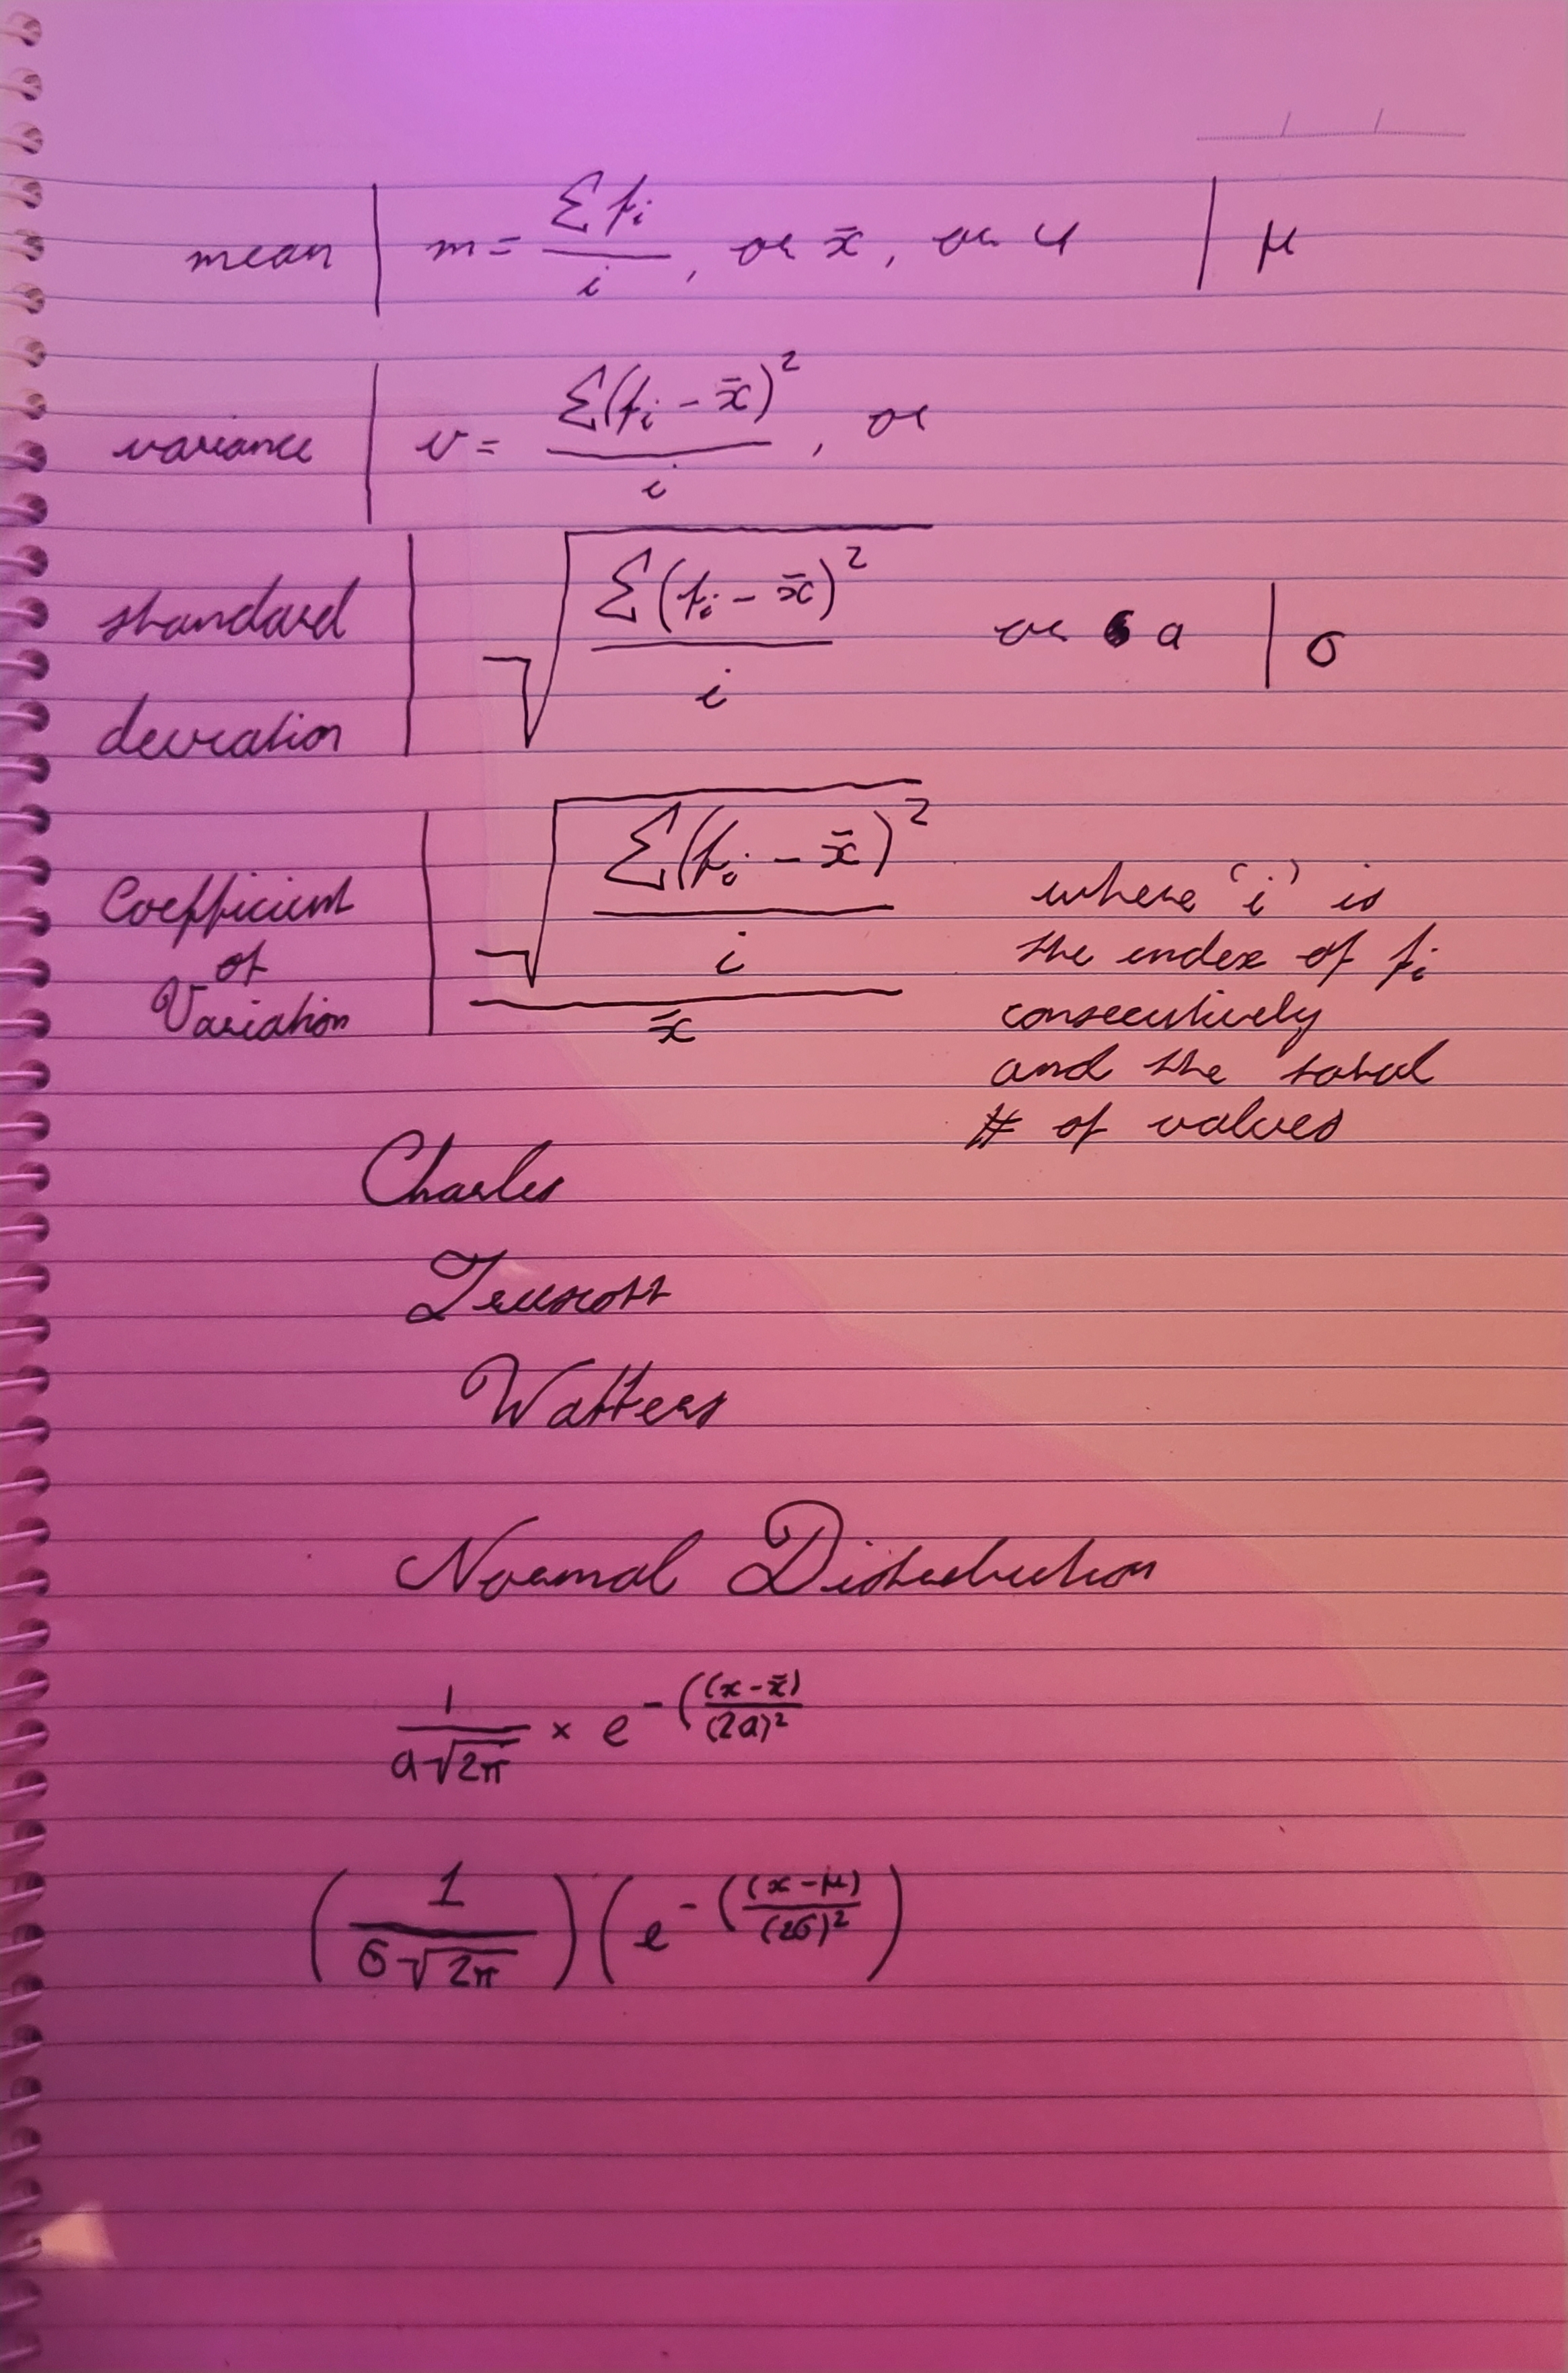 mean | m = Σfi / i, or x̄, or u | μ
variance | v = Σ(fi - x̄)² / i, or
standard deviation | √(Σ(fi - x̄)² / i) or a | σ
Coefficient of Variation | √(Σ(fi - x̄)² / i) / x̄
where 'i' is
the index of fi
consecutively
and the total
# of values
Charles
Truscott
Watters
Normal Distribution
1 / a√2π × e^-((x-x̄) / (2a)²
(1 / σ√2π)(e^-((x-μ) / (2σ)²)